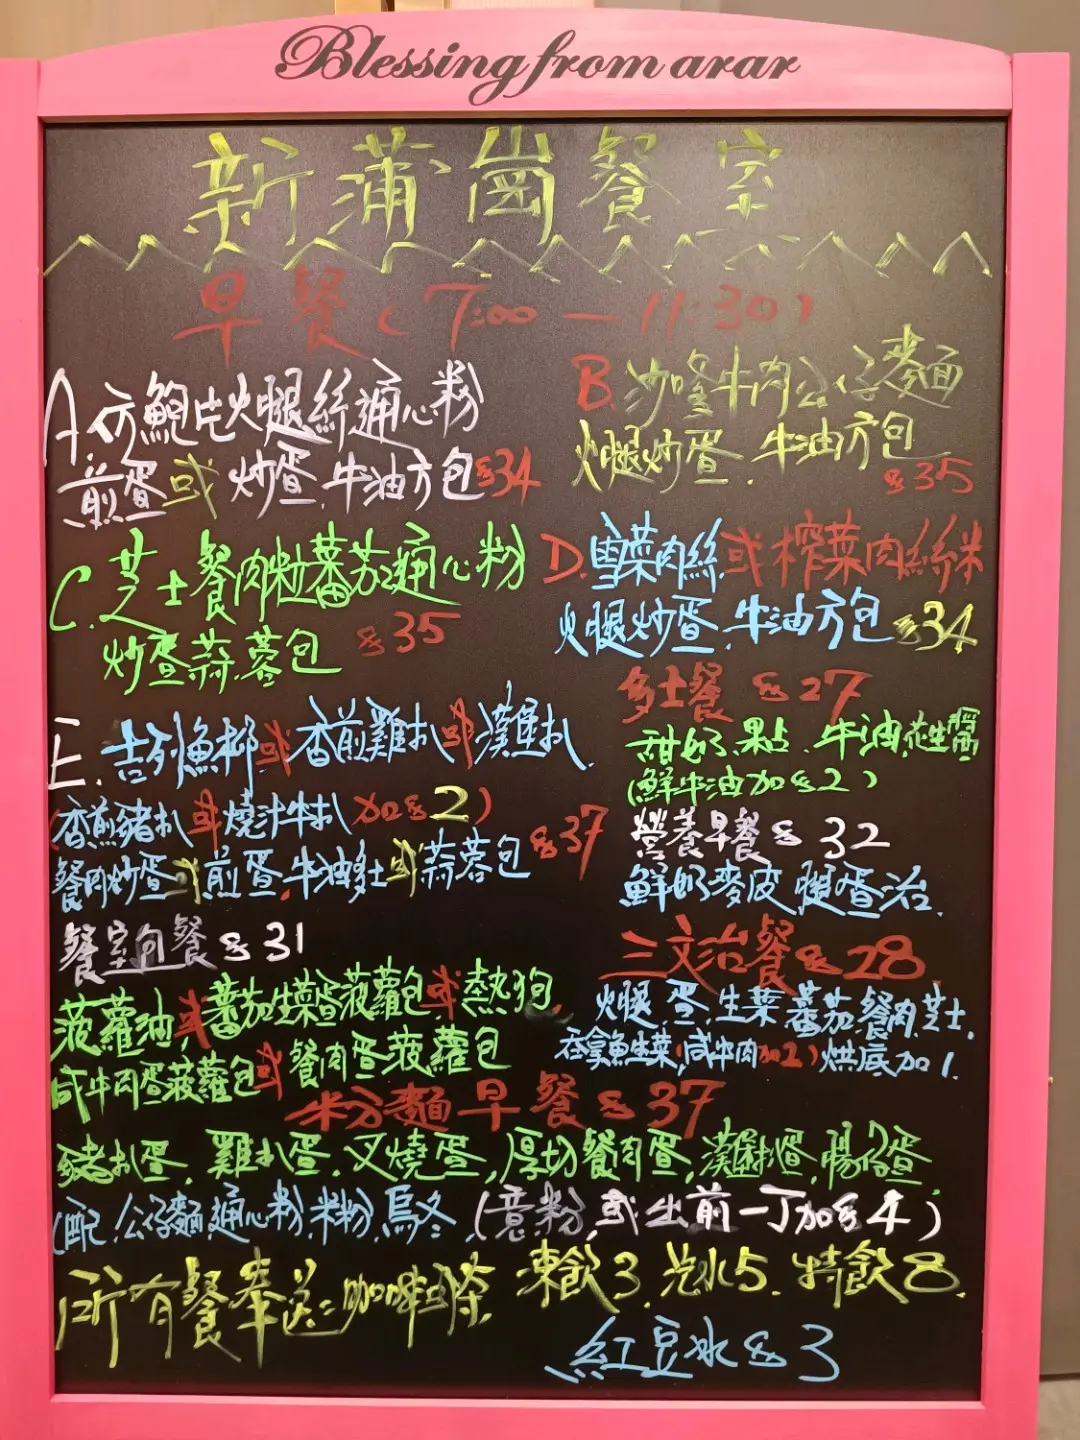 Blessing from arar
新蒲崗餐室
早餐(7:00—11:30)
A.仿鮑片火腿絲通心粉
煎蛋或炒蛋.牛油方包$34
B.沙嗲牛肉公仔麵
火腿炒蛋.牛油方包
$35
C.芝士餐肉粒蕃茄通心粉
炒蛋蒜蓉包 $35
D.雪菜肉絲或榨菜肉絲米
火腿炒蛋.牛油方包$34
E.吉列魚柳或香煎雞扒或漢堡扒
(香煎豬扒或燒汁牛扒加$2)
餐肉炒蛋或煎蛋.牛油多士或蒜蓉包 $37
多士餐 $27
甜奶.果占.牛油.花生醬
(鮮牛油加$2)
營養早餐$32
鮮奶麥皮 腿蛋治
餐室包餐$31
菠蘿油,或蕃茄生菜蛋菠蘿包或熱狗
咸牛肉蛋菠蘿包或餐肉蛋菠蘿包
三文治餐$28
火腿.蛋.生菜.蕃茄.餐肉.芝士.
吞拿魚生菜,(咸牛肉加2)烘底加1.
粉麵早餐$37
豬扒蛋.雞扒蛋.叉燒蛋,厚切餐肉蛋,漢堡扒蛋,腸仔蛋
(配.公仔麵通心粉.米粉.烏冬,(意粉,或出前一丁加$4)
所有餐奉送:咖啡或茶 凍飲3.汽水5.特飲8.
紅豆冰$3